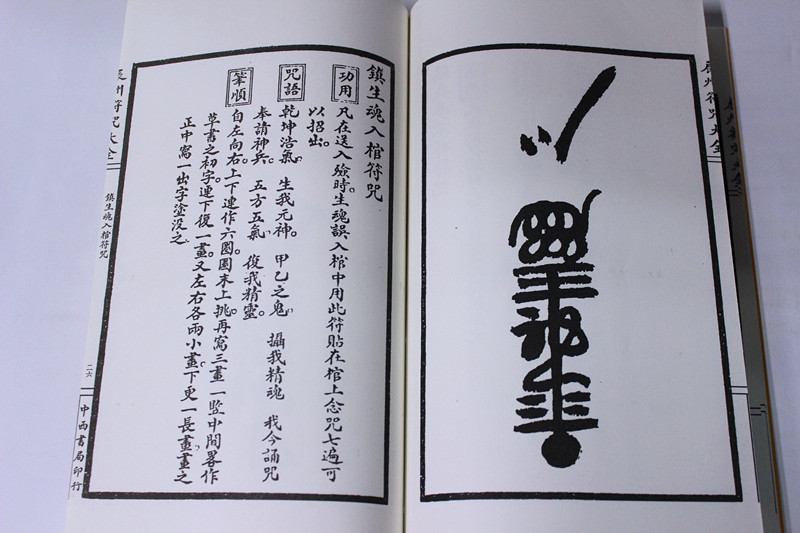 鎮生魂入棺符咒
功用
凡在送入殮時。生魂誤入棺中用此符貼在棺上念咒七遍可
以招出。
咒語
乾坤浩氣。生我元神。甲乙之鬼。攝我精魂 我今誦咒
奉請神兵。五方五氣。復我精靈。
筆順
自左向右。上下連作六圈。圈末上挑。再寫三畫一豎中間畧作
草書之初字。連下復一畫。又左右各兩小畫。下更一長畫。畫之
正中寫一出字。塗沒之。
鎮生魂入棺符咒
二六
中西書局印行
州符咒大全
州符咒大全